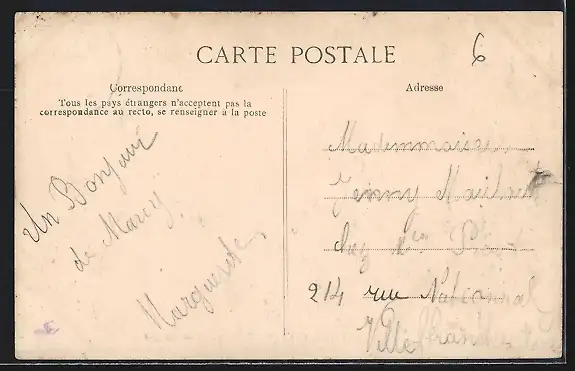 CARTE POSTALE
6
Correspondanc
Tous les pays étrangers n'acceptent pas la
correspondance au recto, se renseigner à la poste
Adresse
Un Bonjour
de Marcy
Marguerite
Jenny
Chez
214 rue National
Villefranche